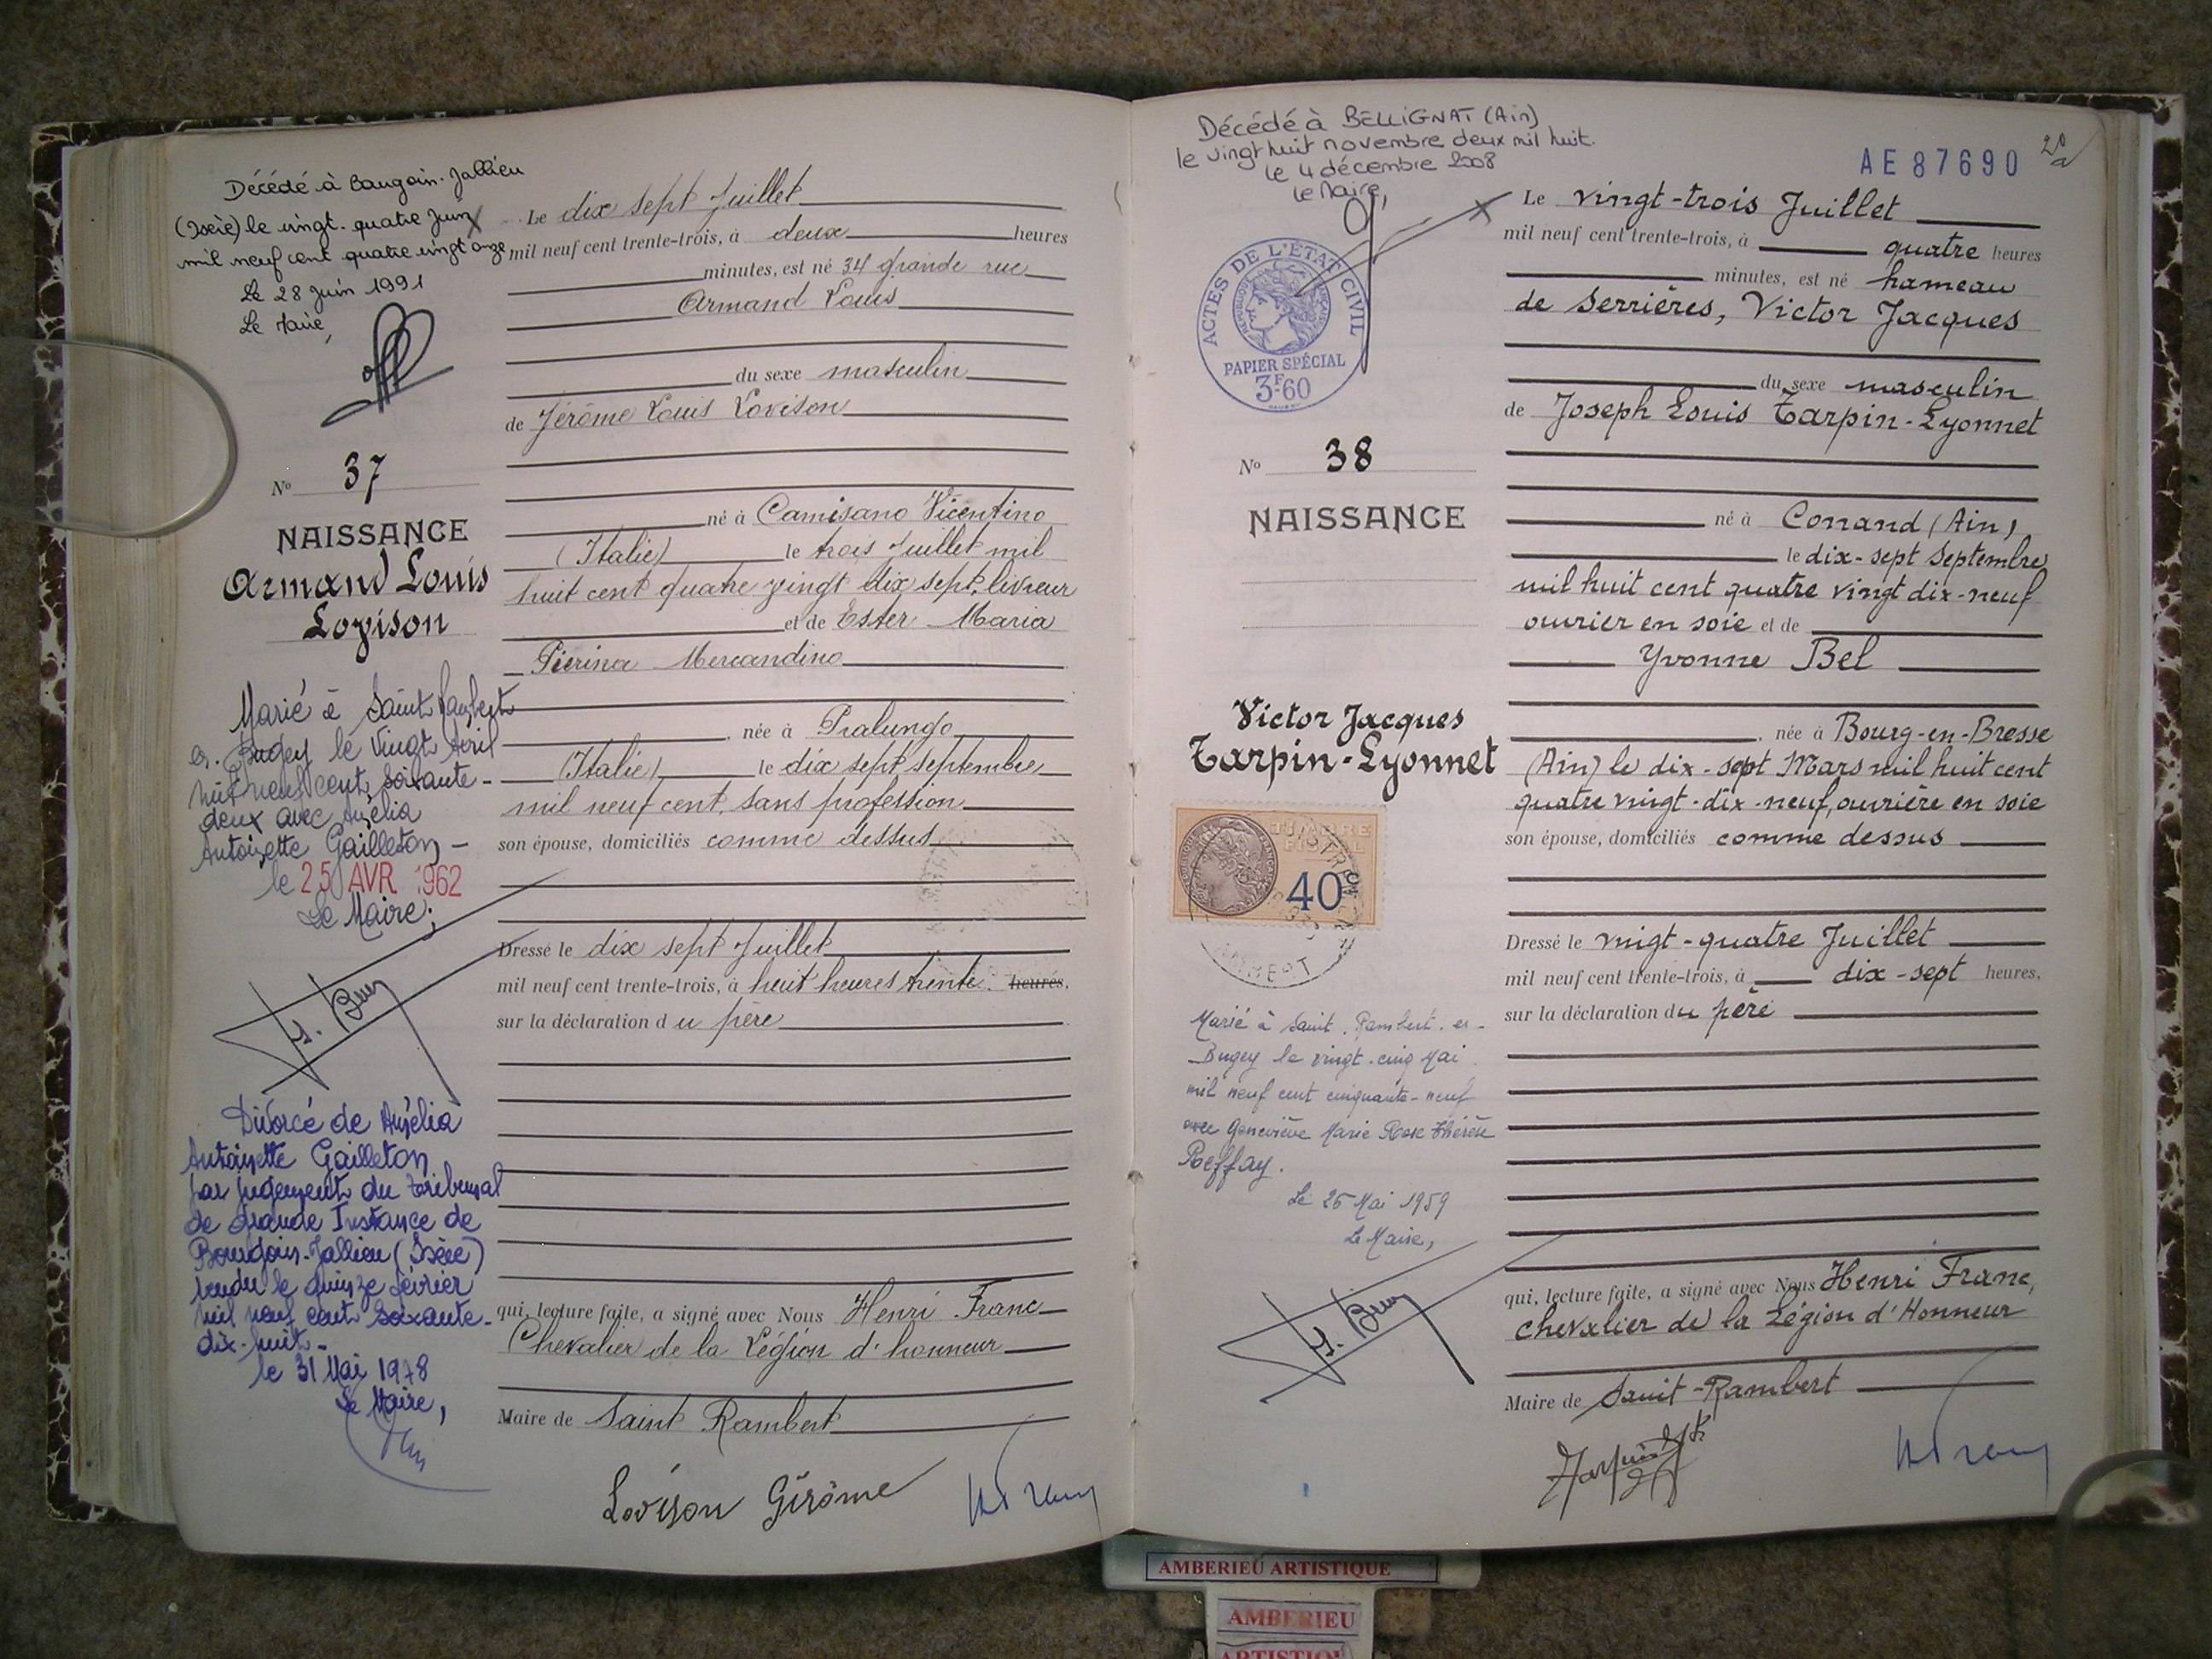 Décédé à Bourgoin-Jallieu
(Isère) le vingt-quatre Juin
mil neuf cent quatre vingt onze
Le 28 Juin 1991
Le Maire,
N° 37
NAISSANCE
Armand Louis
Lovison
Marié à Saint Rambert
en Bugey le Vingt Avril
mil neuf cent soixante-
deux avec Amélia
Antoinette Gailleton -
le 25 AVR 1962
Le Maire;
Divorcé de Amélia
Antoinette Gailleton
par jugement du tribunal
de Grande Instance de
Bourgoin-Jallieu (Isère)
rendu le quinze février
mil neuf cent soixante-
dix-huit-
le 31 Mai 1978
Le Maire,
Le dix sept Juillet
mil neuf cent trente-trois, à deux heures
minutes, est né 34 grande rue
Armand Louis
du sexe masculin
de Jérôme Louis Lovison
né à Camisano Vicentino
(Italie) le trois Juillet mil
huit cent quatre vingt dix sept, livreur
et de Ester Maria
Pierina Mercandino
, née à Pralungo
(Italie) le dix sept septembre
mil neuf cent, sans profession
son épouse, domiciliés comme dessus
Dressé le dix sept Juillet
mil neuf cent trente-trois, à huit heures trente heures,
sur la déclaration du père
qui, lecture faite, a signé avec Nous Henri Franc
Chevalier de la Légion d'honneur
Maire de Saint Rambert
Lovison Gérôme
Décédé à BELLIGNAT (Ain)
le vingt huit novembre deux mil huit.
le 4 décembre 2008
Le Maire,
ACTES DE L'ÉTAT CIVIL
PAPIER SPÉCIAL
3F60
N° 38
NAISSANCE
Victor Jacques
Tarpin-Lyonnet
TIMBRE
FISCAL
40c
Marié à Saint-Rambert-en-
Bugey le vingt-cinq Mai
mil neuf cent cinquante-neuf
avec Geneviève Marie Rose Thérèse
Reffay.
Le 25 Mai 1959
Le Maire,
AE87690
20
Le vingt-trois Juillet
mil neuf cent trente-trois, à quatre heures
minutes, est né hameau
de Serrières, Victor Jacques
du sexe masculin
de Joseph Louis Tarpin-Lyonnet
né à Conand (Ain)
le dix-sept Septembre
mil huit cent quatre vingt dix-neuf
ouvrier en soie et de
Yvonne Bel
, née à Bourg-en-Bresse
(Ain) le dix-sept Mars mil huit cent
quatre vingt-dix-neuf, ouvrière en soie
son épouse, domiciliés comme dessus
Dressé le vingt-quatre Juillet
mil neuf cent trente-trois, à dix-sept heures,
sur la déclaration du père
qui, lecture faite, a signé avec Nous Henri Franc,
Chevalier de la Légion d'Honneur
Maire de Saint-Rambert
AMBERIEU ARTISTIQUE
AMBERIEU
ARTISTIQUE